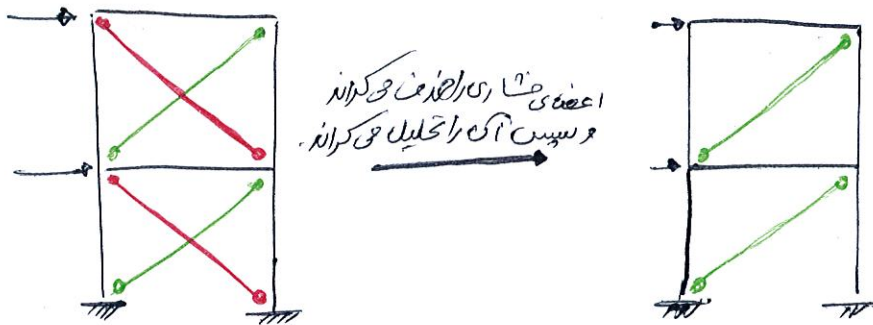 اعضای فشاری را حذف می کراند
و سپس آن را تحلیل می کراند.